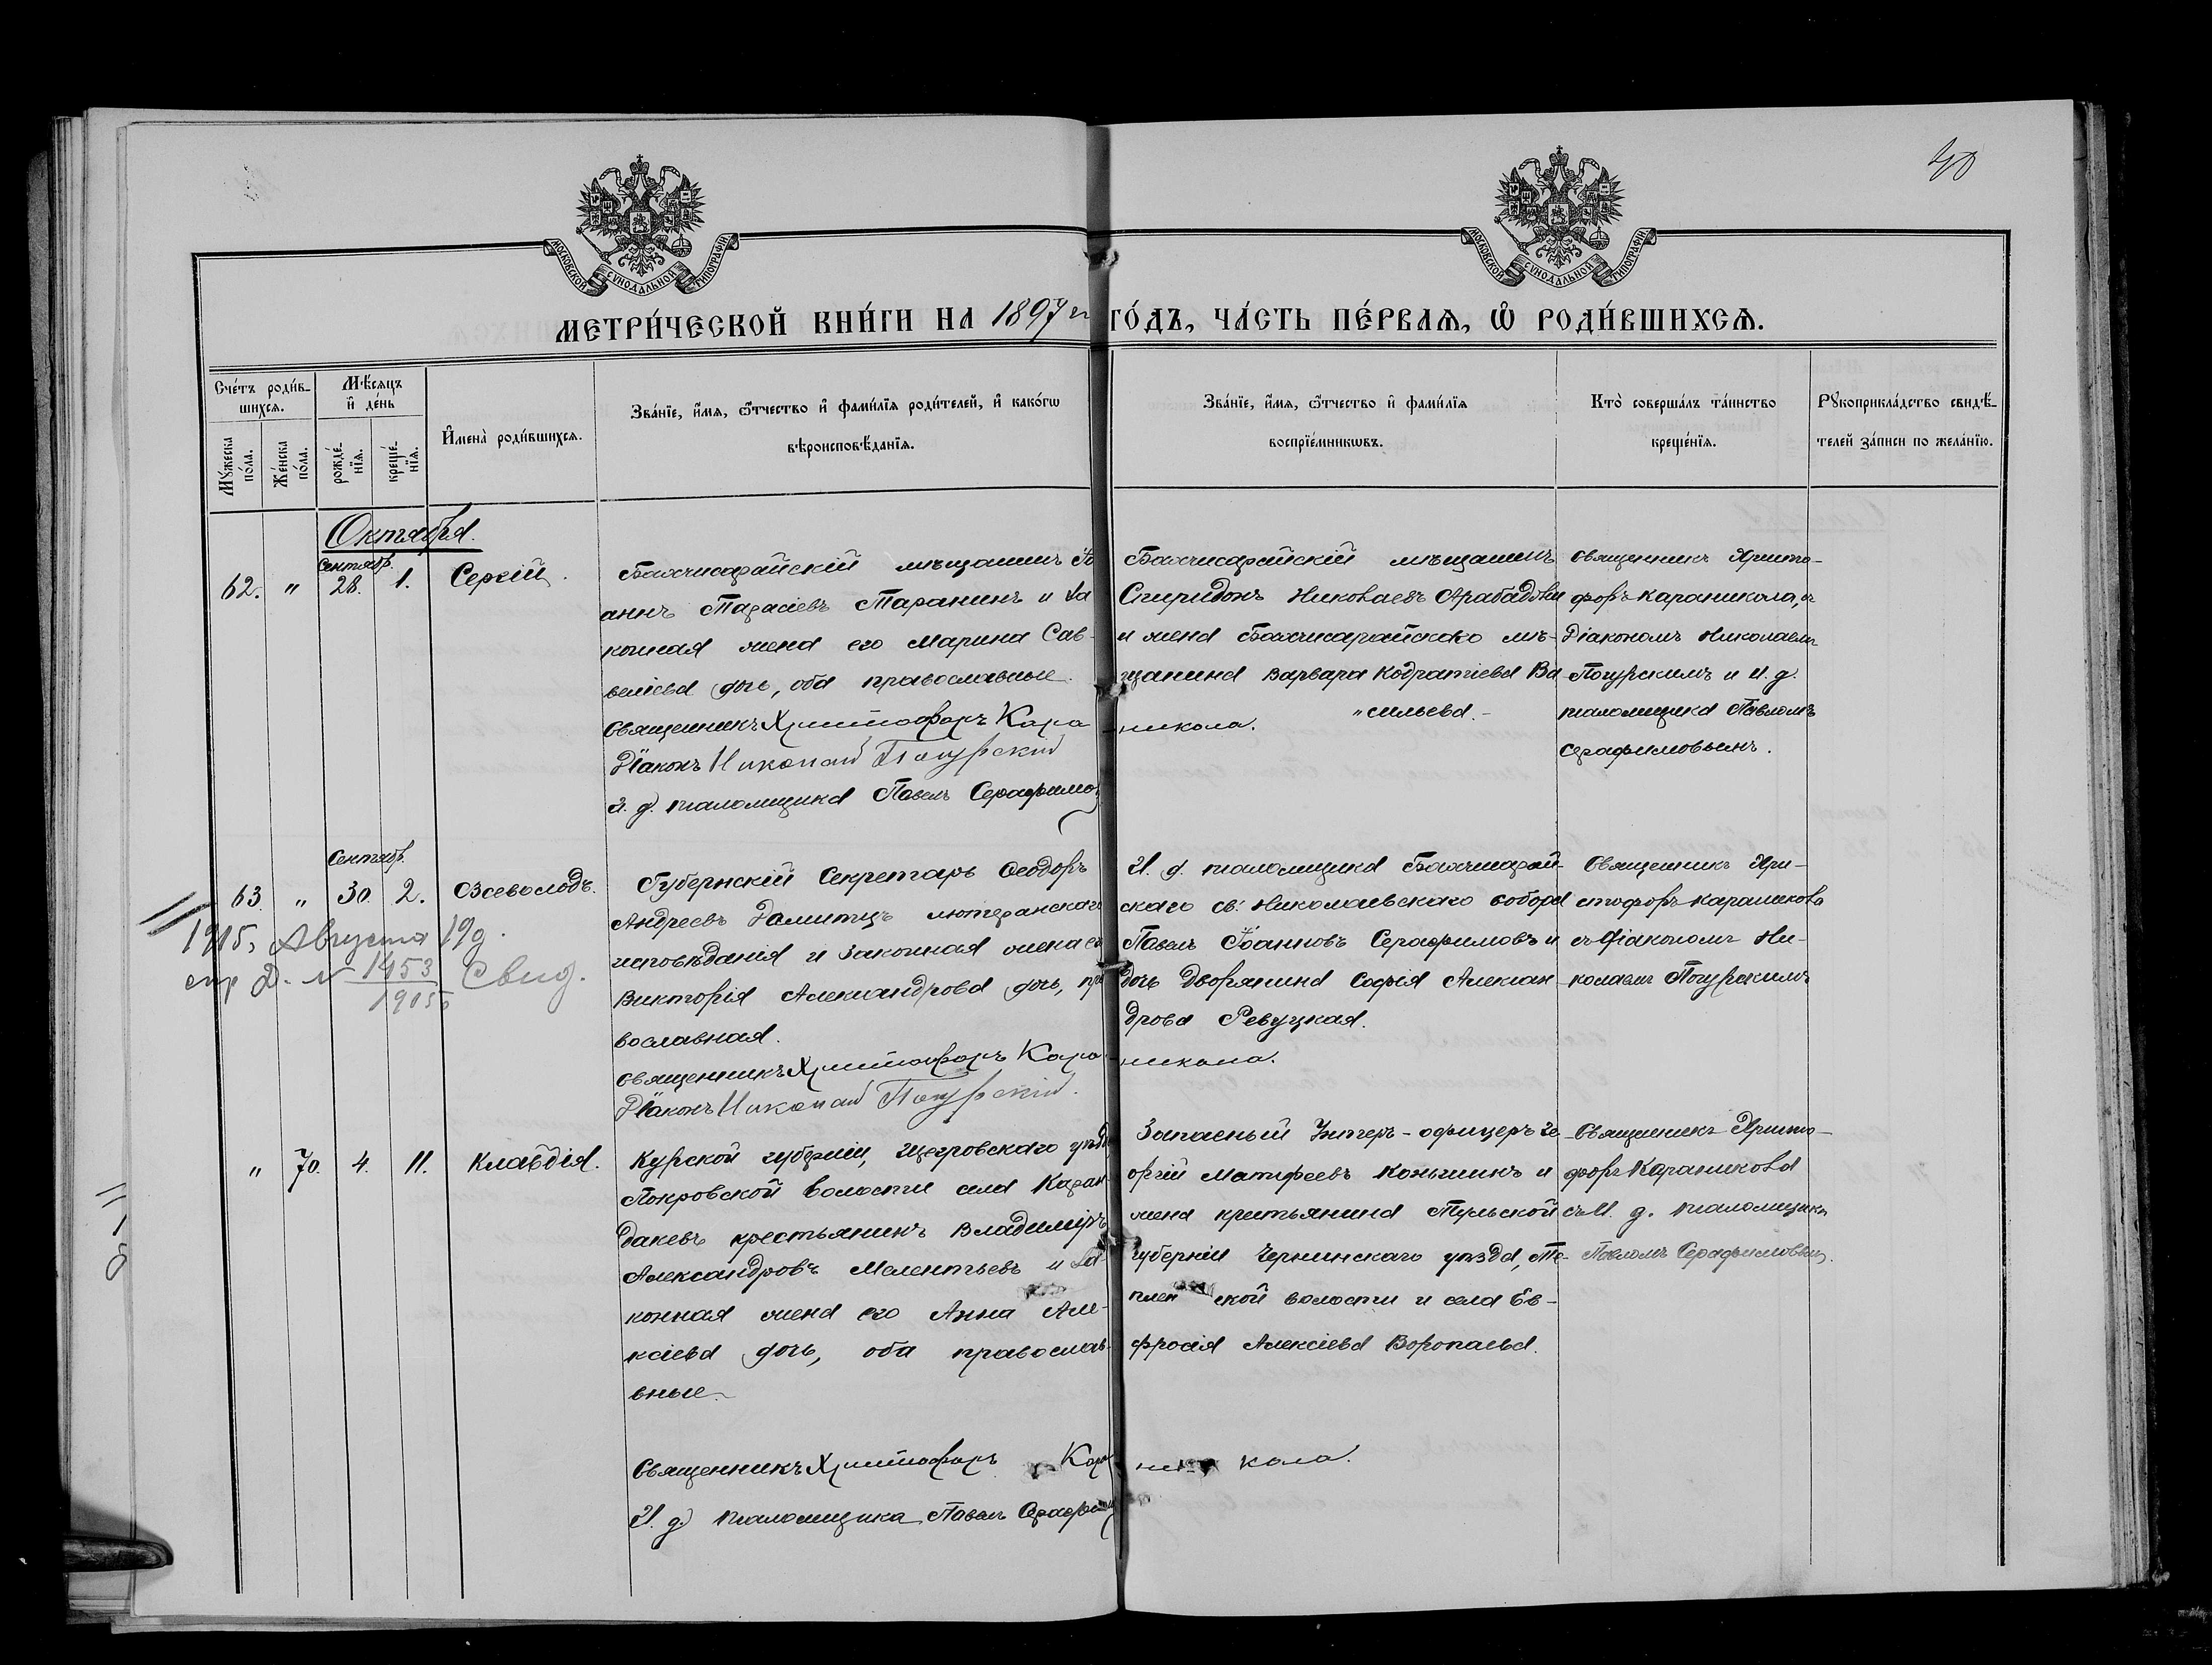 40
МОСКОВСКОЙ СѴНОДАЛЬНОЙ ТИПОГРАФІИ
МОСКОВСКОЙ СѴНОДАЛЬНОЙ ТИПОГРАФІИ
МЕТРИ́ЧЕСКОЙ КНИ́ГИ НА 1897 й ГО́ДЪ, ЧА́СТЬ ПЕ́РВАѦ, Ѡ҆ РОДИ́ВШИХСѦ.
Сче́тъ роди́в-
шихсѧ.
Мꙋ́жеска по́ла.
Же́нска по́ла.
Мѣ́сѧцъ
и҆ де́нь
рожде́-
нїѧ.
креще́-
нїѧ.
И҆мена̀ роди́вшихсѧ.
Зва́нїе, и҆́мѧ, ѻ҆́тчество и҆ фами́лїѧ роди́телей, и҆ како́гѡ
вѣроисповѣ́данїѧ.
Зва́нїе, и҆́мѧ, ѻ҆́тчество и҆ фами́лїѧ
воспрїе́мникѡвъ.
Кто̀ соверша́лъ та́инство
креще́нїѧ.
Рꙋкоприкла́дство свидѣ́-
телей за́писи по жела́нїю.
Октября.
62. " Сентябр. 28. 1. Сергій.
Бахчисарайскій мѣщанинъ Іо
аннъ Тарасіевъ Таранинъ и за
конная жена его Марина Сав-
веліева дочь, оба православные.
Священникъ Христофоръ Кара
никола.
Діаконъ Николай Погурскій
И. д. псаломщика Павелъ Серафимов
Бахчисарайскій мѣщанинъ
Спиридонъ Николаевъ
и жена Бахчисарайскаго мѣ-
щанина Варвара Кодратіева Ва
"сильева.-
Священникъ Христо-
форъ Караникола, съ
Діакономъ Николаемъ
Погурскимъ и И. д.
псаломщика Павломъ
Серафимовымъ.
63. " Сентябр. 30. 2. Всеволодъ.
Губернскій Секретарь Ѳеодоръ
Андреевъ лютеранскаго
исповѣданія и законная жена его
Викторія Александрова дочь, пра
вославная.
Священникъ Христофоръ Кара-
никола.
Діаконъ Николай Погурскій.
И. д. псаломщика Бахчисарай-
скаго св. Николаевскаго собора
Павелъ Іоанновъ Серафимовъ и
дочь дворянина Софія Алексан-
дрова Ревуцкая.
Священникъ Хри-
стофоръ Караникола
съ Діакономъ Ни-
колаемъ Погурскимъ
1915, Августа 19 д.
стр 2. N 1453 Свид.
1915
" 70. 4. 11. Клавдія.
Курской губерніи, Щигровскаго уѣзда
Покровской волости села Каран
дакевъ крестьянинъ Владиміръ
Александровъ Мелентьевъ и за-
конная жена его Анна Але-
ксіева дочь, оба православ-
вные.
Священникъ Христофоръ Кара
никола.
И. д. псаломщика Павелъ Серафимов
Запасный Унтеръ-офицеръ Ге-
оргій Матѳеевъ Коньшинъ и
жена крестьянина Тульской
губерніи Чернинскаго уѣзда, Те-
плен ской волости и села Ев-
фросія Алексіева Воропаева.
Священникъ Христо-
форъ Караникола
съ И. д. псаломщика
Павломъ Серафимовымъ.